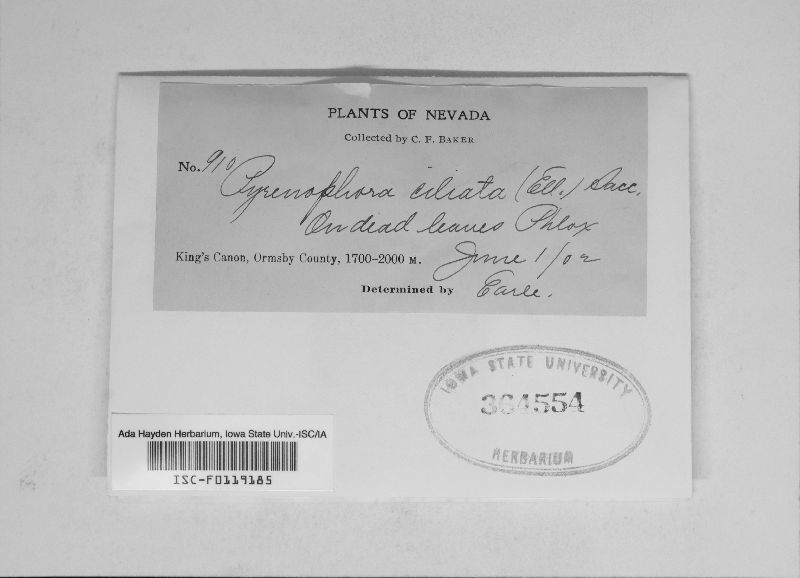 PLANTS OF NEVADA
Collected by C. F. BAKER
No. 910
Pyrenophora ciliata (Ell.) Sacc.
On dead leaves Phlox
King's Canon, Ormsby County, 1700-2000 M. June 1/02
Determined by Earle.
IOWA STATE UNIVERSITY
364554
HERBARIUM
Ada Hayden Herbarium, Iowa State Univ.-ISC/IA
ISC-F0119185